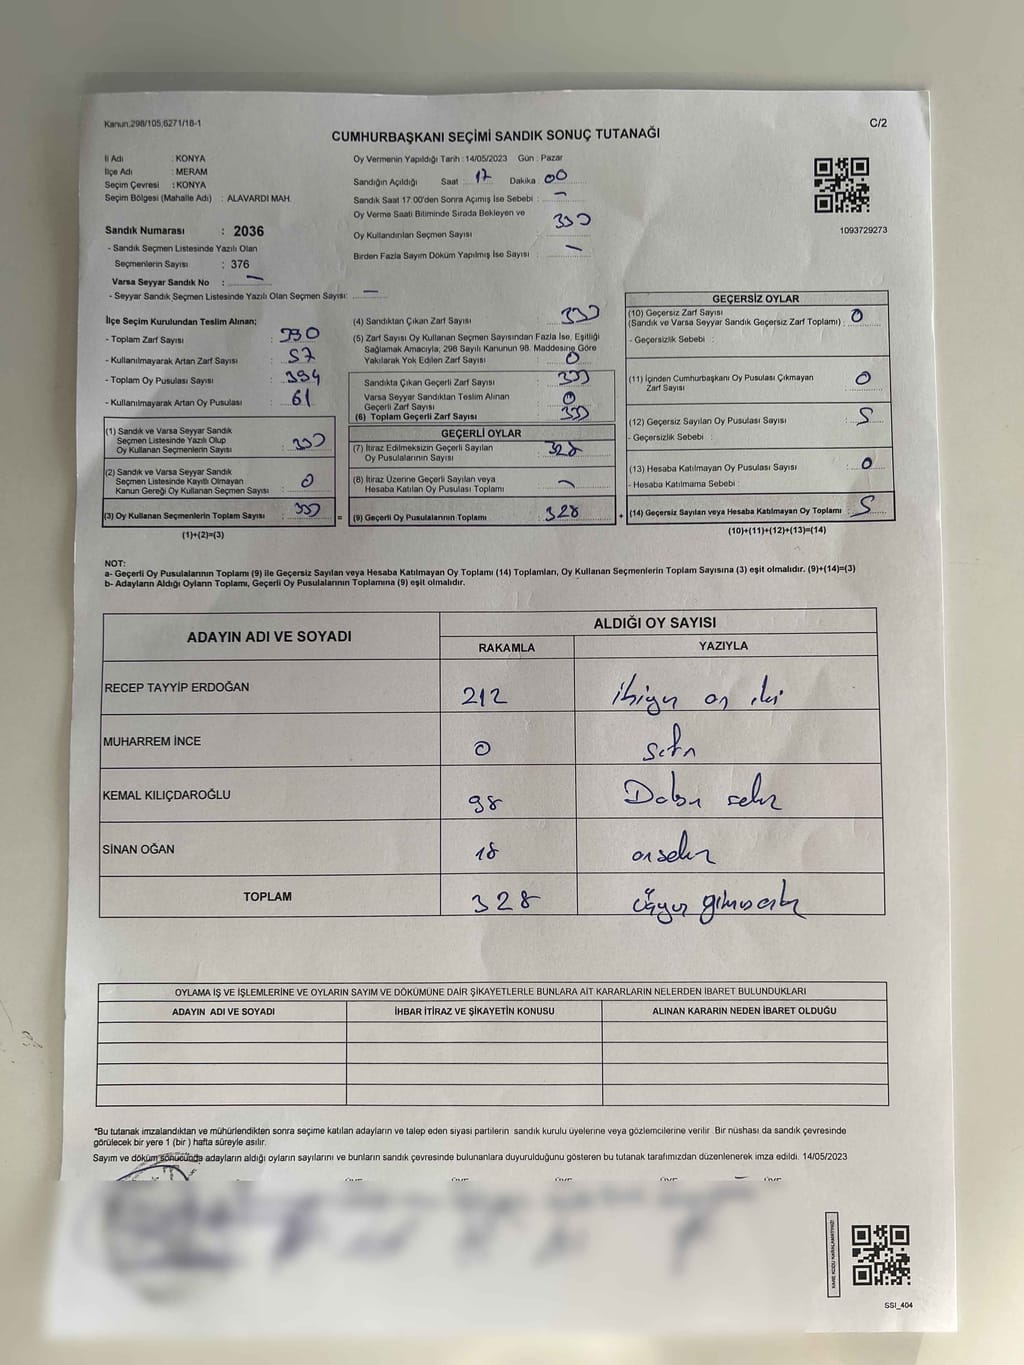 Kanun.298/105,6271/18-1
C/2
CUMHURBAŞKANI SEÇİMİ SANDIK SONUÇ TUTANAĞI
İl Adı : KONYA
İlçe Adı : MERAM
Seçim Çevresi : KONYA
Seçim Bölgesi (Mahalle Adı) : ALAVARDI MAH.
Sandık Numarası : 2036
- Sandık Seçmen Listesinde Yazılı Olan
Seçmenlerin Sayısı : 376
Varsa Seyyar Sandık No : —
- Seyyar Sandık Seçmen Listesinde Yazılı Olan Seçmen Sayısı: —
Oy Vermenin Yapıldığı Tarih : 14/05/2023 Gün : Pazar
Sandığın Açıldığı Saat 17 Dakika : 00
Sandık Saat 17.00'den Sonra Açımış İse Sebebi : —
Oy Verme Saati Bitiminde Sırada Bekleyen ve
Oy Kullandırılan Seçmen Sayısı
Birden Fazla Sayım Döküm Yapılmış İse Sayısı : —
1093729273
İlçe Seçim Kurulundan Teslim Alınan;
- Toplam Zarf Sayısı :
- Kullanılmayarak Artan Zarf Sayısı : 57
- Toplam Oy Pusulası Sayısı : 394
- Kullanılmayarak Artan Oy Pusulası : 61
(1) Sandık ve Varsa Seyyar Sandık
Seçmen Listesinde Yazılı Olup
Oy Kullanan Seçmenlerin Sayısı : 333
(2) Sandık ve Varsa Seyyar Sandık
Seçmen Listesinde Kayıtlı Olmayan
Kanun Gereği Oy Kullanan Seçmen Sayısı : 0
(3) Oy Kullanan Seçmenlerin Toplam Sayısı : 333 =
(1)+(2)=(3)
(4) Sandıktan Çıkan Zarf Sayısı : 333
(5) Zarf Sayısı Oy Kullanan Seçmen Sayısından Fazla İse, Eşitliği
Sağlamak Amacıyla; 298 Sayılı Kanunun 98. Maddesine Göre
Yakılarak Yok Edilen Zarf Sayısı : 0
Sandıkta Çıkan Geçerli Zarf Sayısı : 333
Varsa Seyyar Sandıktan Teslim Alınan
Geçerli Zarf Sayısı : 0
(6) Toplam Geçerli Zarf Sayısı : 333
GEÇERLİ OYLAR
(7) İtiraz Edilmeksizin Geçerli Sayılan
Oy Pusulalarının Sayısı : 328
(8) İtiraz Üzerine Geçerli Sayılan veya
Hesaba Katılan Oy Pusulası Toplamı : —
(9) Geçerli Oy Pusulalarının Toplamı : 328 +
GEÇERSİZ OYLAR
(10) Geçersiz Zarf Sayısı
(Sandık ve Varsa Seyyar Sandık Geçersiz Zarf Toplamı) : 0
- Geçersizlik Sebebi :
(11) İçinden Cumhurbaşkanı Oy Pusulası Çıkmayan
Zarf Sayısı : 0
(12) Geçersiz Sayılan Oy Pusulası Sayısı : 5
- Geçersizlik Sebebi :
(13) Hesaba Katılmayan Oy Pusulası Sayısı : 0
- Hesaba Katılmama Sebebi :
(14) Geçersiz Sayılan veya Hesaba Katılmayan Oy Toplamı : 5
(10)+(11)+(12)+(13)=(14)
NOT:
a- Geçerli Oy Pusulalarının Toplamı (9) ile Geçersiz Sayılan veya Hesaba Katılmayan Oy Toplamı (14) Toplamları, Oy Kullanan Seçmenlerin Toplam Sayısına (3) eşit olmalıdır. (9)+(14)=(3)
b- Adayların Aldığı Oyların Toplamı, Geçerli Oy Pusulalarının Toplamına (9) eşit olmalıdır.
ADAYIN ADI VE SOYADI
ALDIĞI OY SAYISI
RAKAMLA YAZIYLA
RECEP TAYYİP ERDOĞAN 212 ikiyüz on iki
MUHARREM İNCE 0 sıfır
KEMAL KILIÇDAROĞLU 98 Doksan sekiz
SİNAN OĞAN 18 onsekiz
TOPLAM 328 üçyüz yirmisekiz
OYLAMA İŞ VE İŞLEMLERİNE VE OYLARIN SAYIM VE DÖKÜMÜNE DAİR ŞİKAYETLERLE BUNLARA AİT KARARLARIN NELERDEN İBARET BULUNDUKLARI
ADAYIN ADI VE SOYADI İHBAR İTİRAZ VE ŞİKAYETİN KONUSU ALINAN KARARIN NEDEN İBARET OLDUĞU
*Bu tutanak imzalandıktan ve mühürlendikten sonra seçime katılan adayların ve talep eden siyasi partilerin sandık kurulu üyelerine veya gözlemcilerine verilir. Bir nüshası da sandık çevresinde
görülecek bir yere 1 (bir ) hafta süreyle asılır.
Sayım ve döküm sonucunda adayların aldığı oyların sayılarını ve bunların sandık çevresinde bulunanlara duyurulduğunu gösteren bu tutanak tarafımızdan düzenlenerek imza edildi. 14/05/2023
SSI_404